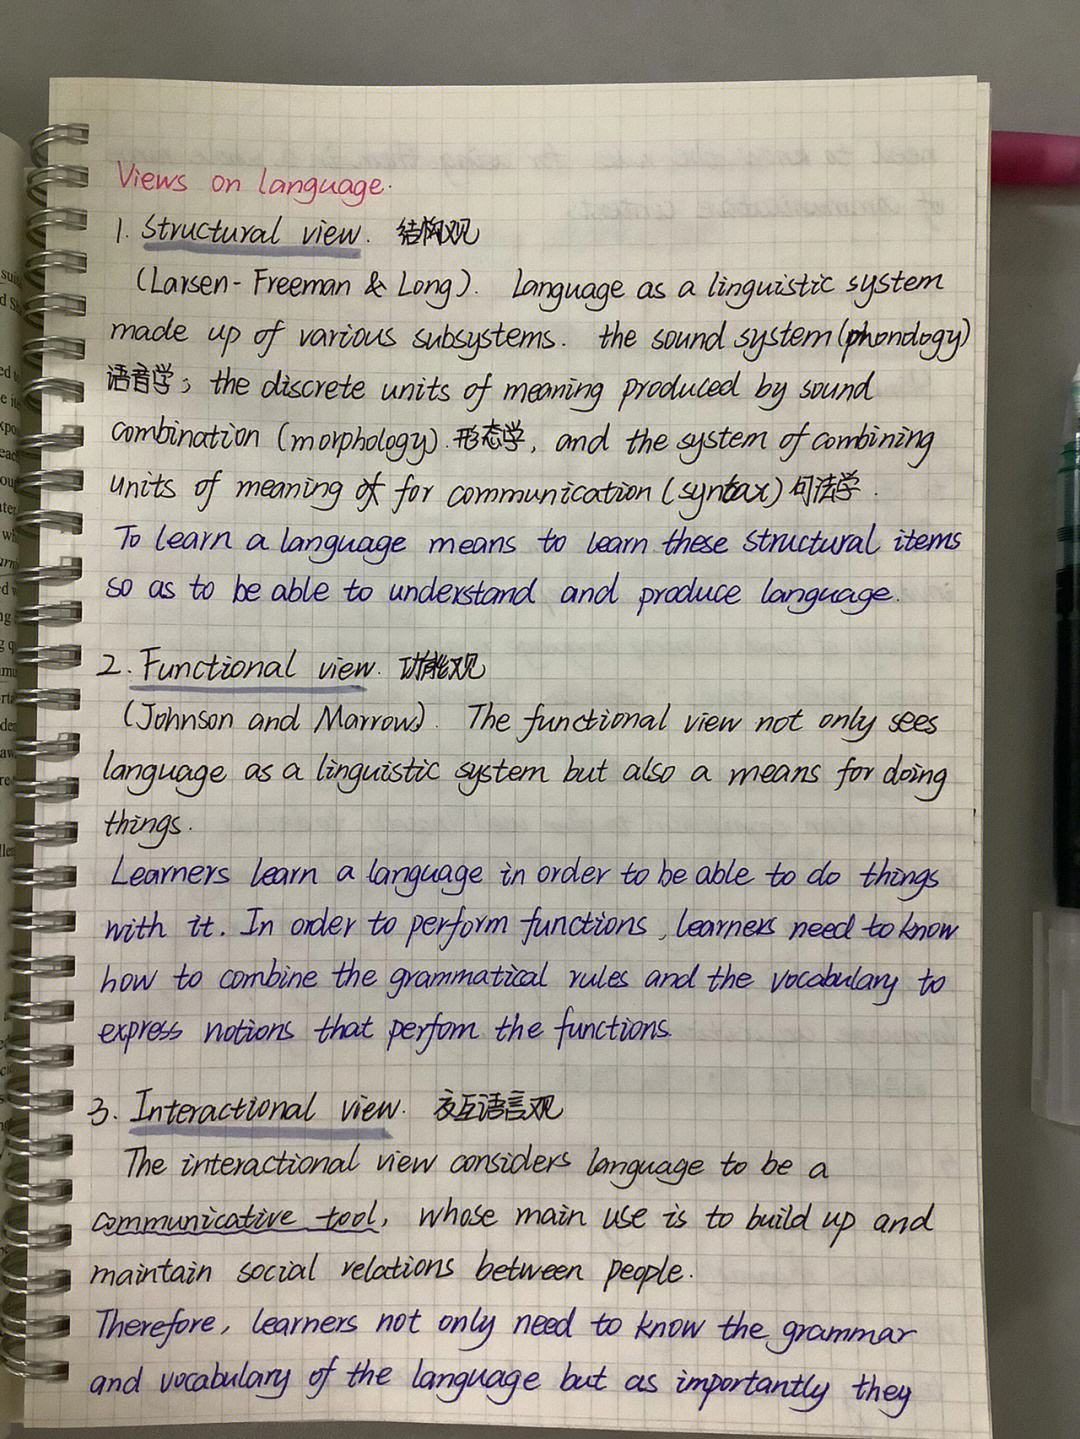 Views on language.
1. Structural view. 结构观
(Larsen-Freeman & Long). Language as a linguistic system
made up of various subsystems. the sound system (phonology)
语音学; the discrete units of meaning produced by sound
combination (morphology). 形态学, and the system of combining
units of meaning for communication (syntax) 句法学.
To learn a language means to learn these structural items
so as to be able to understand and produce language.
2. Functional view. 功能观
(Johnson and Marrow). The functional view not only sees
language as a linguistic system but also a means for doing
things.
Learners learn a language in order to be able to do things
with it. In order to perform functions, learners need to know
how to combine the grammatical rules and the vocabulary to
express notions that perfom the functions.
3. Interactional view. 交互语言观
The interactional view considers language to be a
communicative tool, whose main use is to build up and
maintain social relations between people.
Therefore, learners not only need to know the grammar
and vocabulary of the language but as importantly they